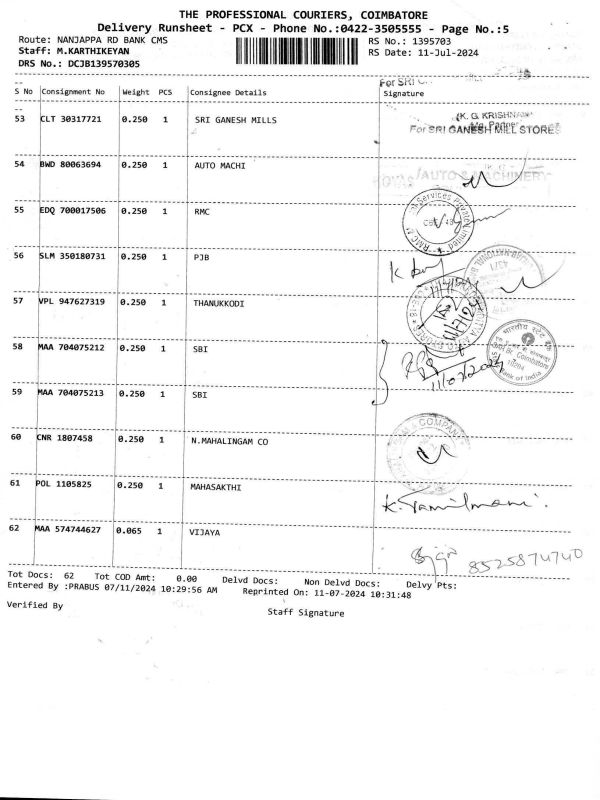 THE PROFESSIONAL COURIERS, COIMBATORE
Delivery Runsheet - PCX - Phone No.:0422-3505555 - Page No.:5
Route: NANJAPPA RD BANK CMS RS No.: 1395703
Staff: M.KARTHIKEYAN RS Date: 11-Jul-2024
DRS No.: DCJB139570305
For SRI
S No Consignment No Weight PCS Consignee Details Signature
53 CLT 30317721 0.250 1 SRI GANESH MILLS
(K. G. KRISHNAN)
Partner
For SRI GANESH MILL STORES
54 BWD 80063694 0.250 1 AUTO MACHI
AUTO & MACHINERY
55 EDQ 700017506 0.250 1 RMC
Services Private Limited
56 SLM 350180731 0.250 1 PJB
57 VPL 947627319 0.250 1 THANUKKODI
58 MAA 704075212 0.250 1 SBI
भारतीय स्टेट बैंक
Coimbatore
Bank of India
11/07/2024
59 MAA 704075213 0.250 1 SBI
60 CNR 1807458 0.250 1 N.MAHALINGAM CO
& COMPANY
61 POL 1105825 0.250 1 MAHASAKTHI
K. Tamilmani.
62 MAA 574744627 0.065 1 VIJAYA
8525874740
Tot Docs: 62 Tot COD Amt: 0.00 Delvd Docs: Non Delvd Docs: Delvy Pts:
Entered By :PRABUS 07/11/2024 10:29:56 AM Reprinted On: 11-07-2024 10:31:48
Verified By
Staff Signature